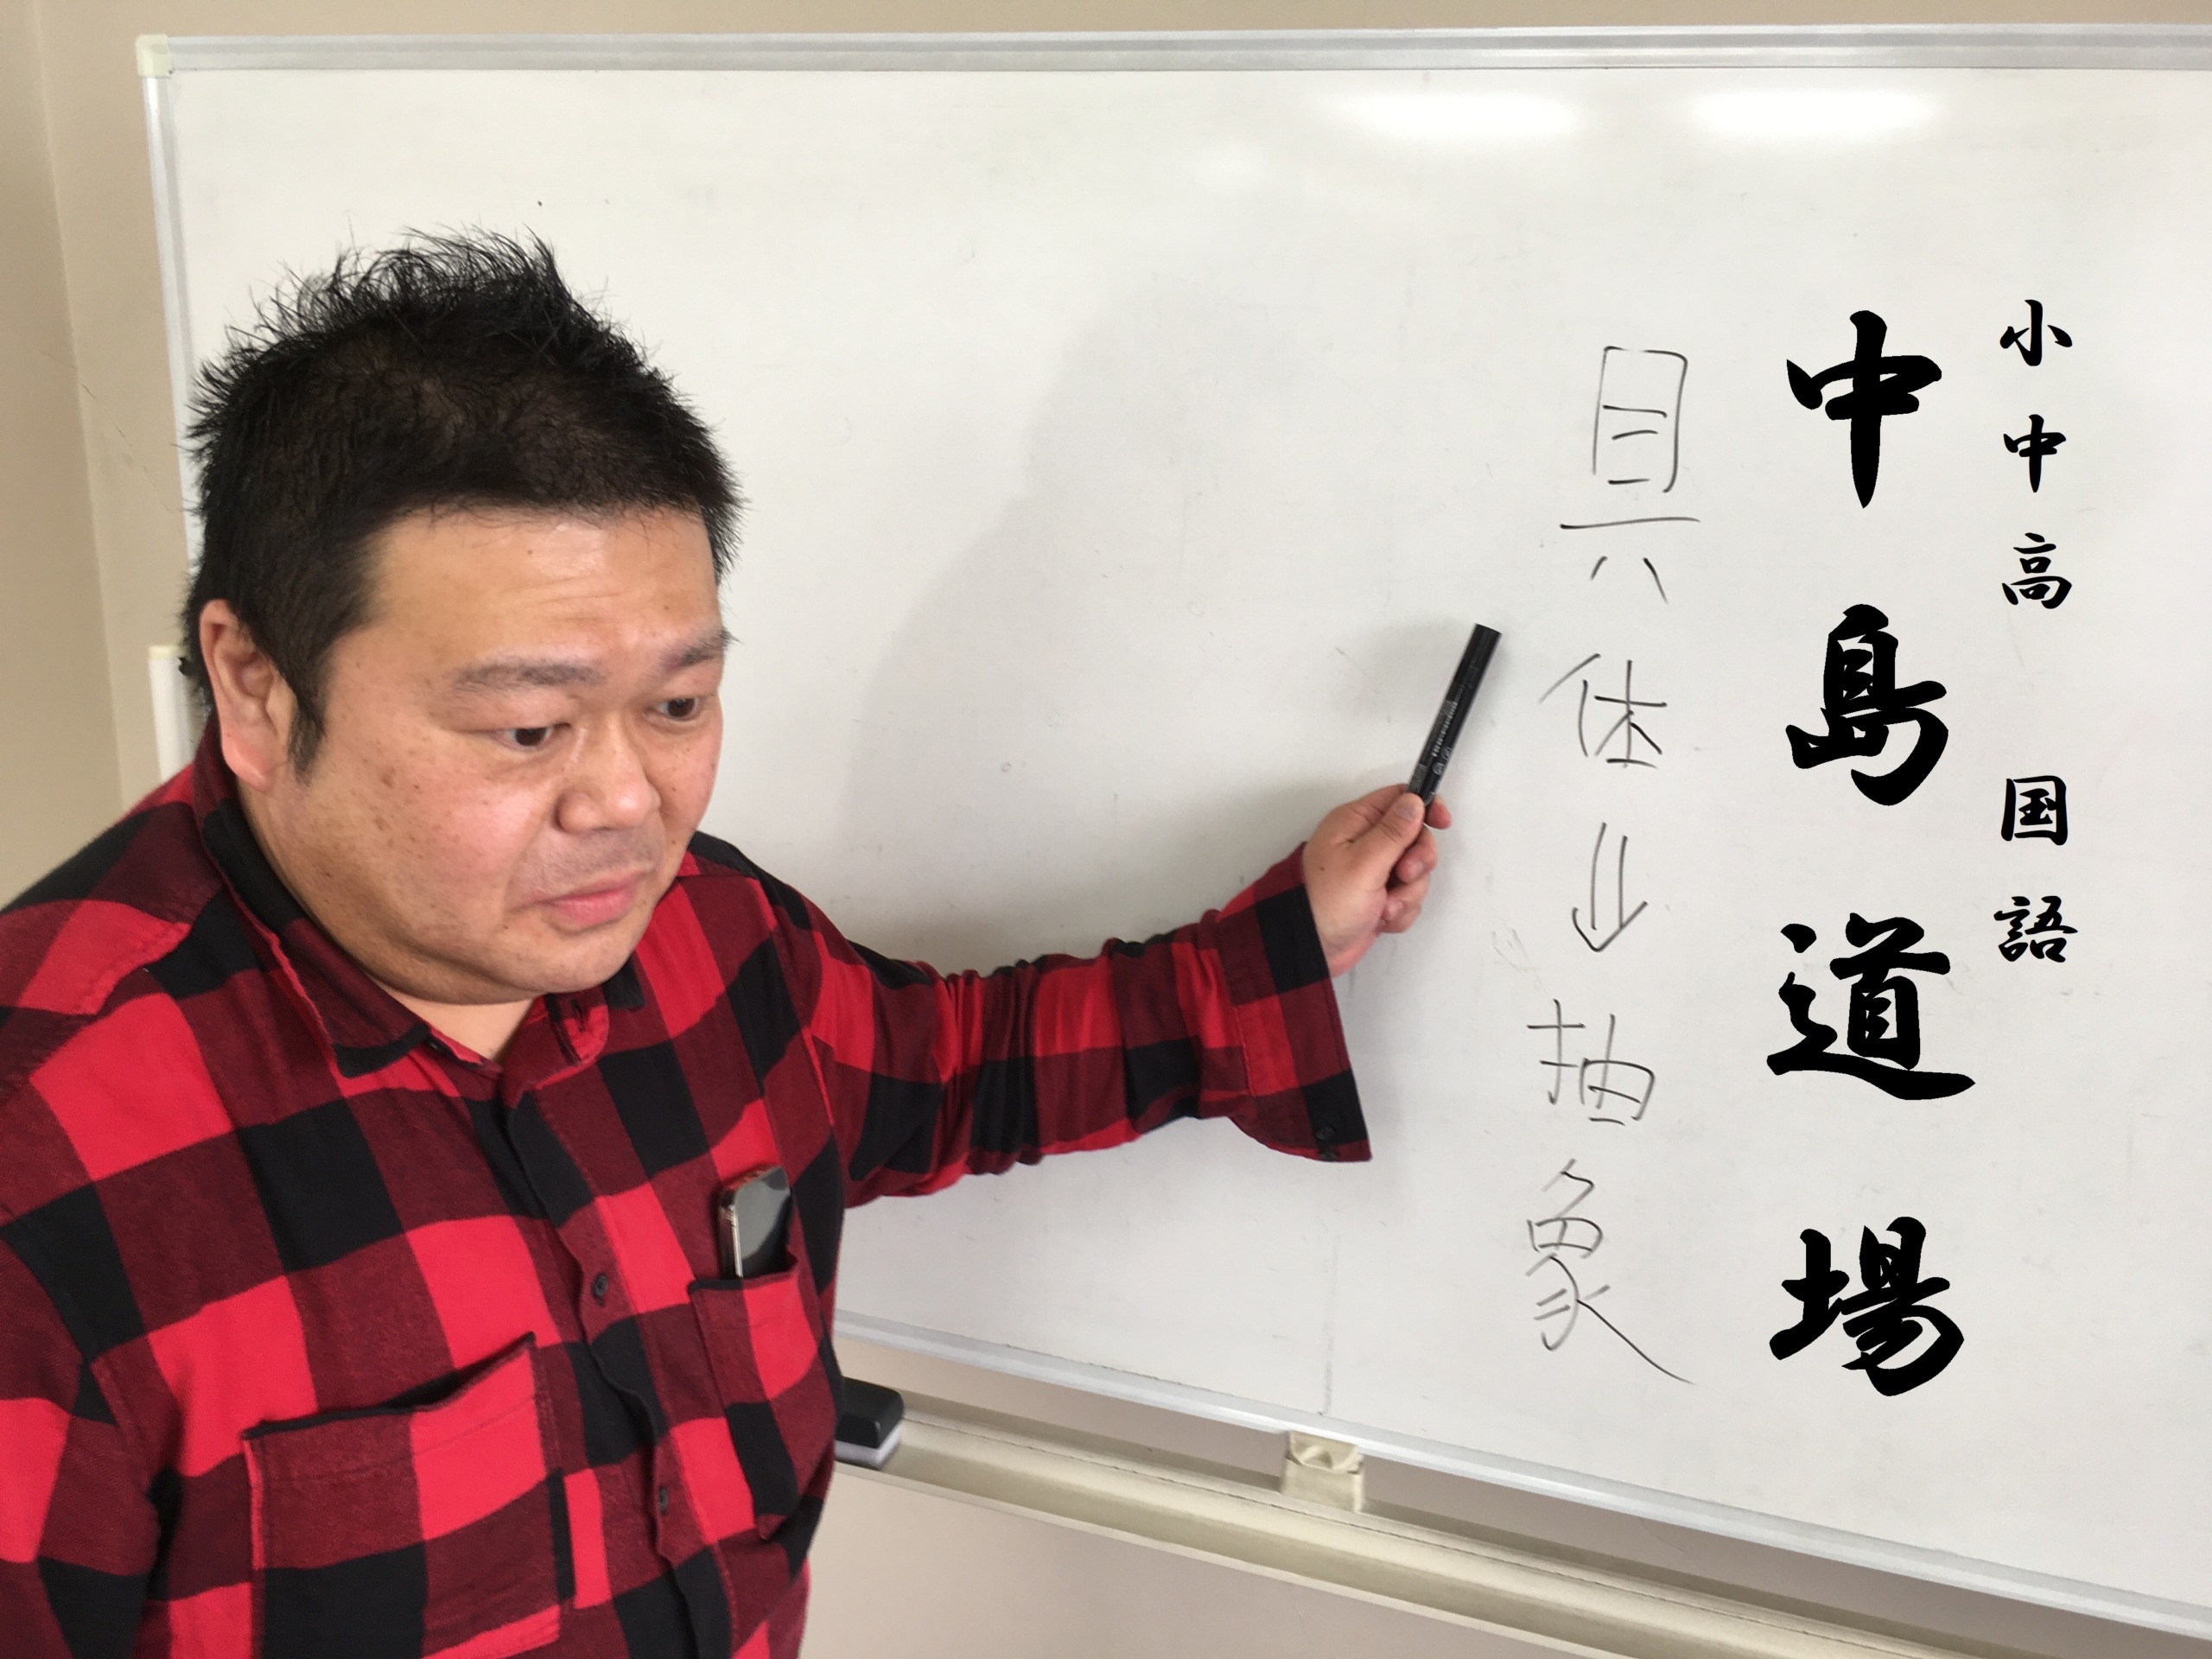 小中高 国語
中島道場
具体⇓抽象